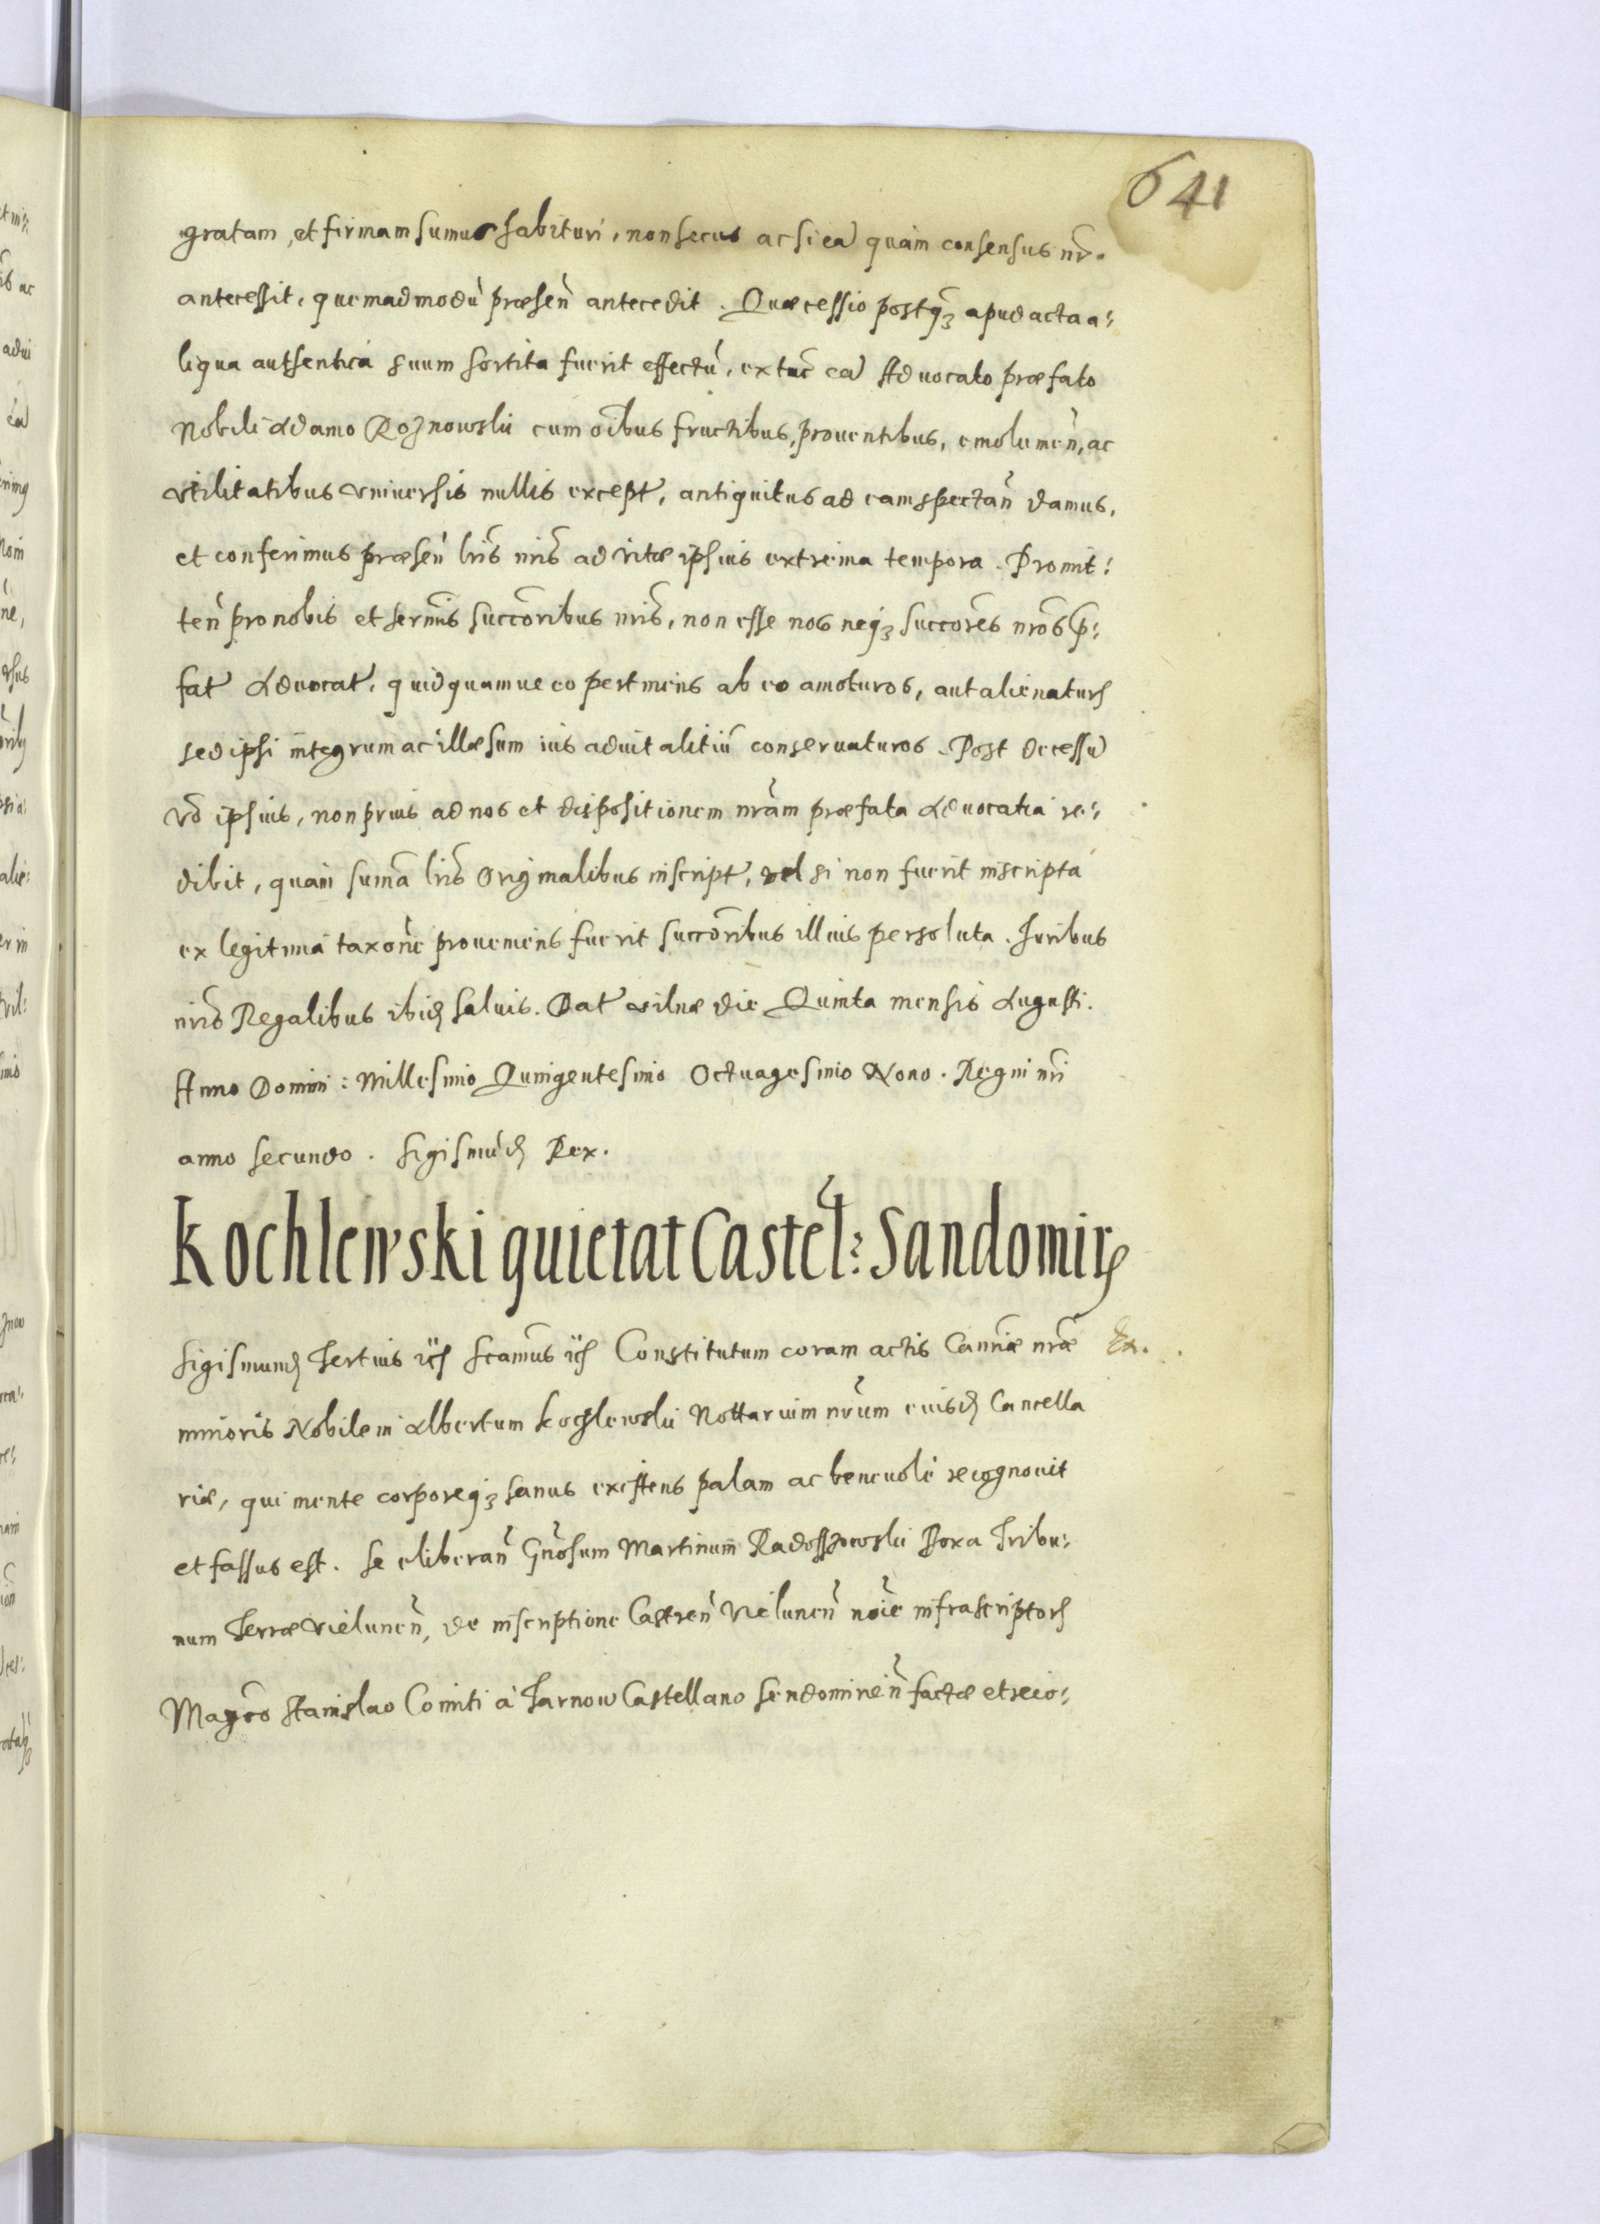 641
gratam, et firmam sumus habituri, non secus ac si ea quam consensus nr̃.
antecessit, quemadmodũ præsen̄ antecedit. Quæ cessio postq̃ apud acta a⸗
liqua authentica suum sortita fuerit effectũ, extũc eã Advocato præfato
Nobili Adamo Roznowski cum oĩbus fructibus, proventibus, emolumen̄, ac
vtilitatibus vniversis nullis except, antiquitus ad eam spectan̄ damus,
et conferimus præsen̄ lr̃is nr̃is ad vitæ ipsius extrema tempora. Promit⸗
ten̄ pro nobis et serm̃is succõribus nr̃is, non esse nos neq₃ succõres nr̃os p̃⸗
fat Advocat, quidquamue eo pertinens ab eo amoturos, aut alienaturꝭ
sed ipsi integrum ac illæsum ius aduitalitiũ conservaturos. Post decessũ
võ ipsius, non prius ad nos et dispositionem nr̃am præfata Advocatia re⸗
dibit, quam sum̃a lr̃is Originalibus inscript, vel si non fuerit inscripta
ex legitima taxõne proveniens fuerit succõribus illius persoluta. Juribus
nr̃is Regalibus ibiꝺ salvis. Dat Vilnæ die Quinta mensis Augusti.
Anno Domini: Millesimo Quingentesimo Octuagesimo Nono. Regni nr̃i
anno secundo. Sigismũꝺ Rex.
Kochlewski quietat Castel̃: Sandomirꝭ
Sigismunꝺ Tertius icꝭ Scamũs icꝭ Constitutum coram actis Canñiæ nr̃æ
minoris Nobilem Albertum Kochlewski Nottarium nr̃um eiusꝺ Cancella
riæ, qui mente corporeq₃ sanus existens palam ac benevolè recognouit
et fassus est. Se eliberan̄ Gñosum Martinum Radosszowski Poxa Tribu⸗
num Terræ Vielunen̄, de inscriptione Castren̄ Vielunen̄ noĩe infrascriptorꝭ
Magc̃o Stanislao Comiti à Tarnow Castellano Sendomirien̄ factæ et reco⸗